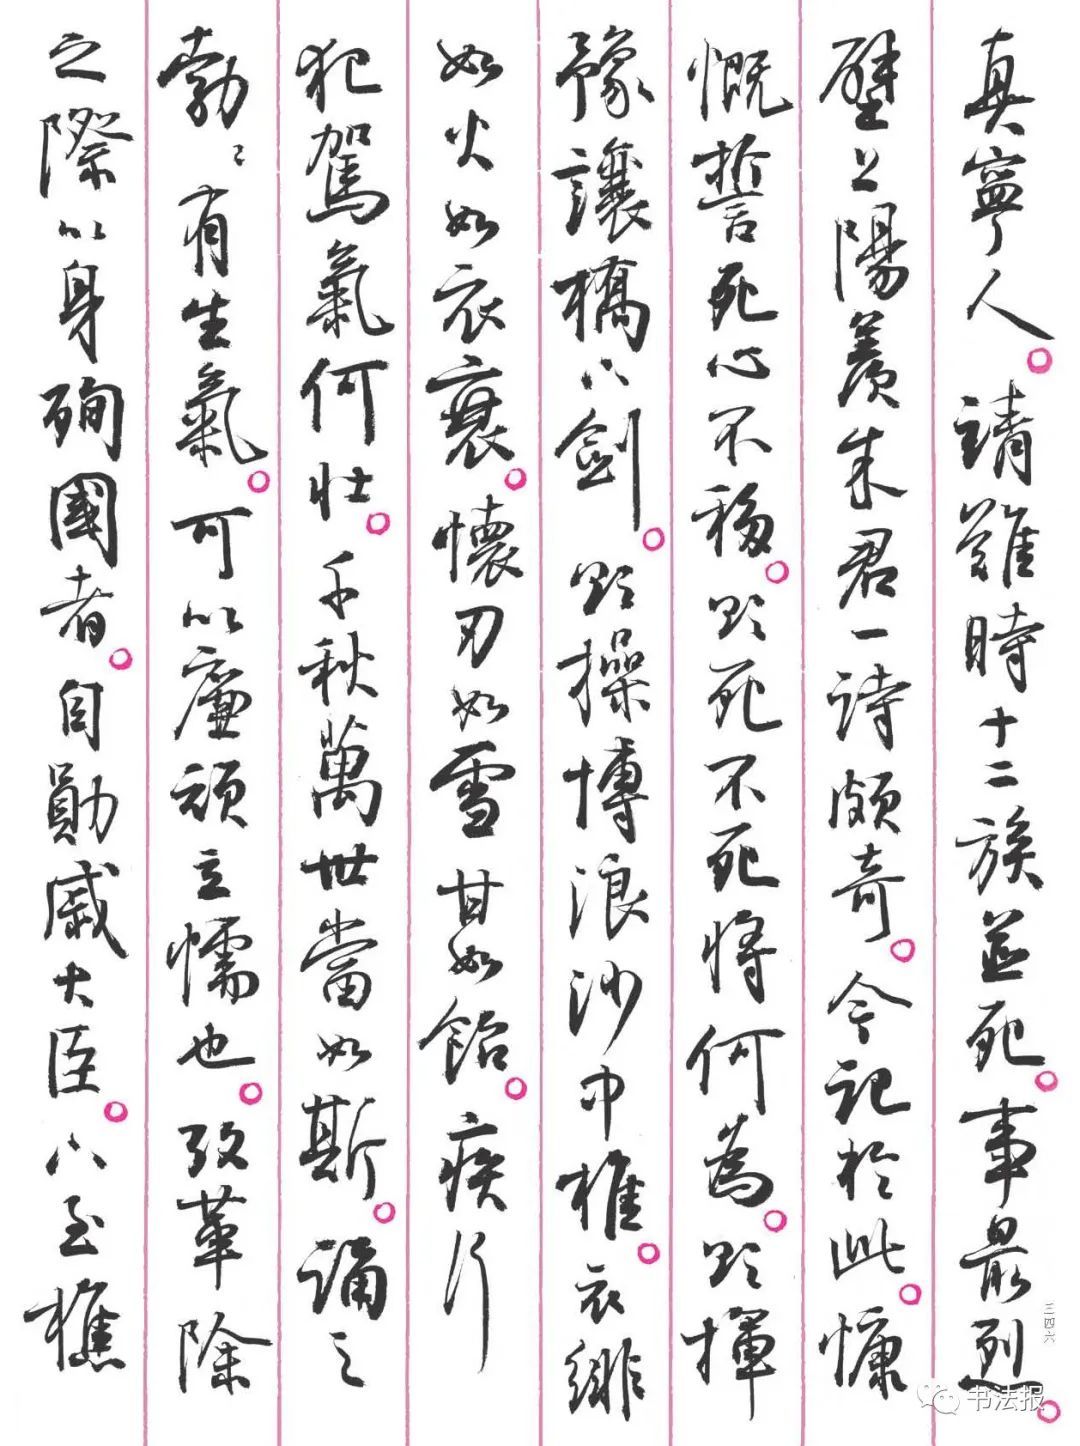 真寧人。靖難時十二族並死。事最烈。
壁上陽羨朱君一詩頗奇。今記於此。慷
慨誓死心不移。欲死不死將何為。欲揮
豫讓橋下劍。欲操博浪沙中椎。衣緋
如火如衣衰。懷刃如雪甘如飴。疾行
犯駕氣何壯。千秋萬世當如斯。誦之
勃〻有生氣。可以廉頑立懦也。攷革除
之際以身殉國者。自勳戚大臣。下至樵
三四六
书法报